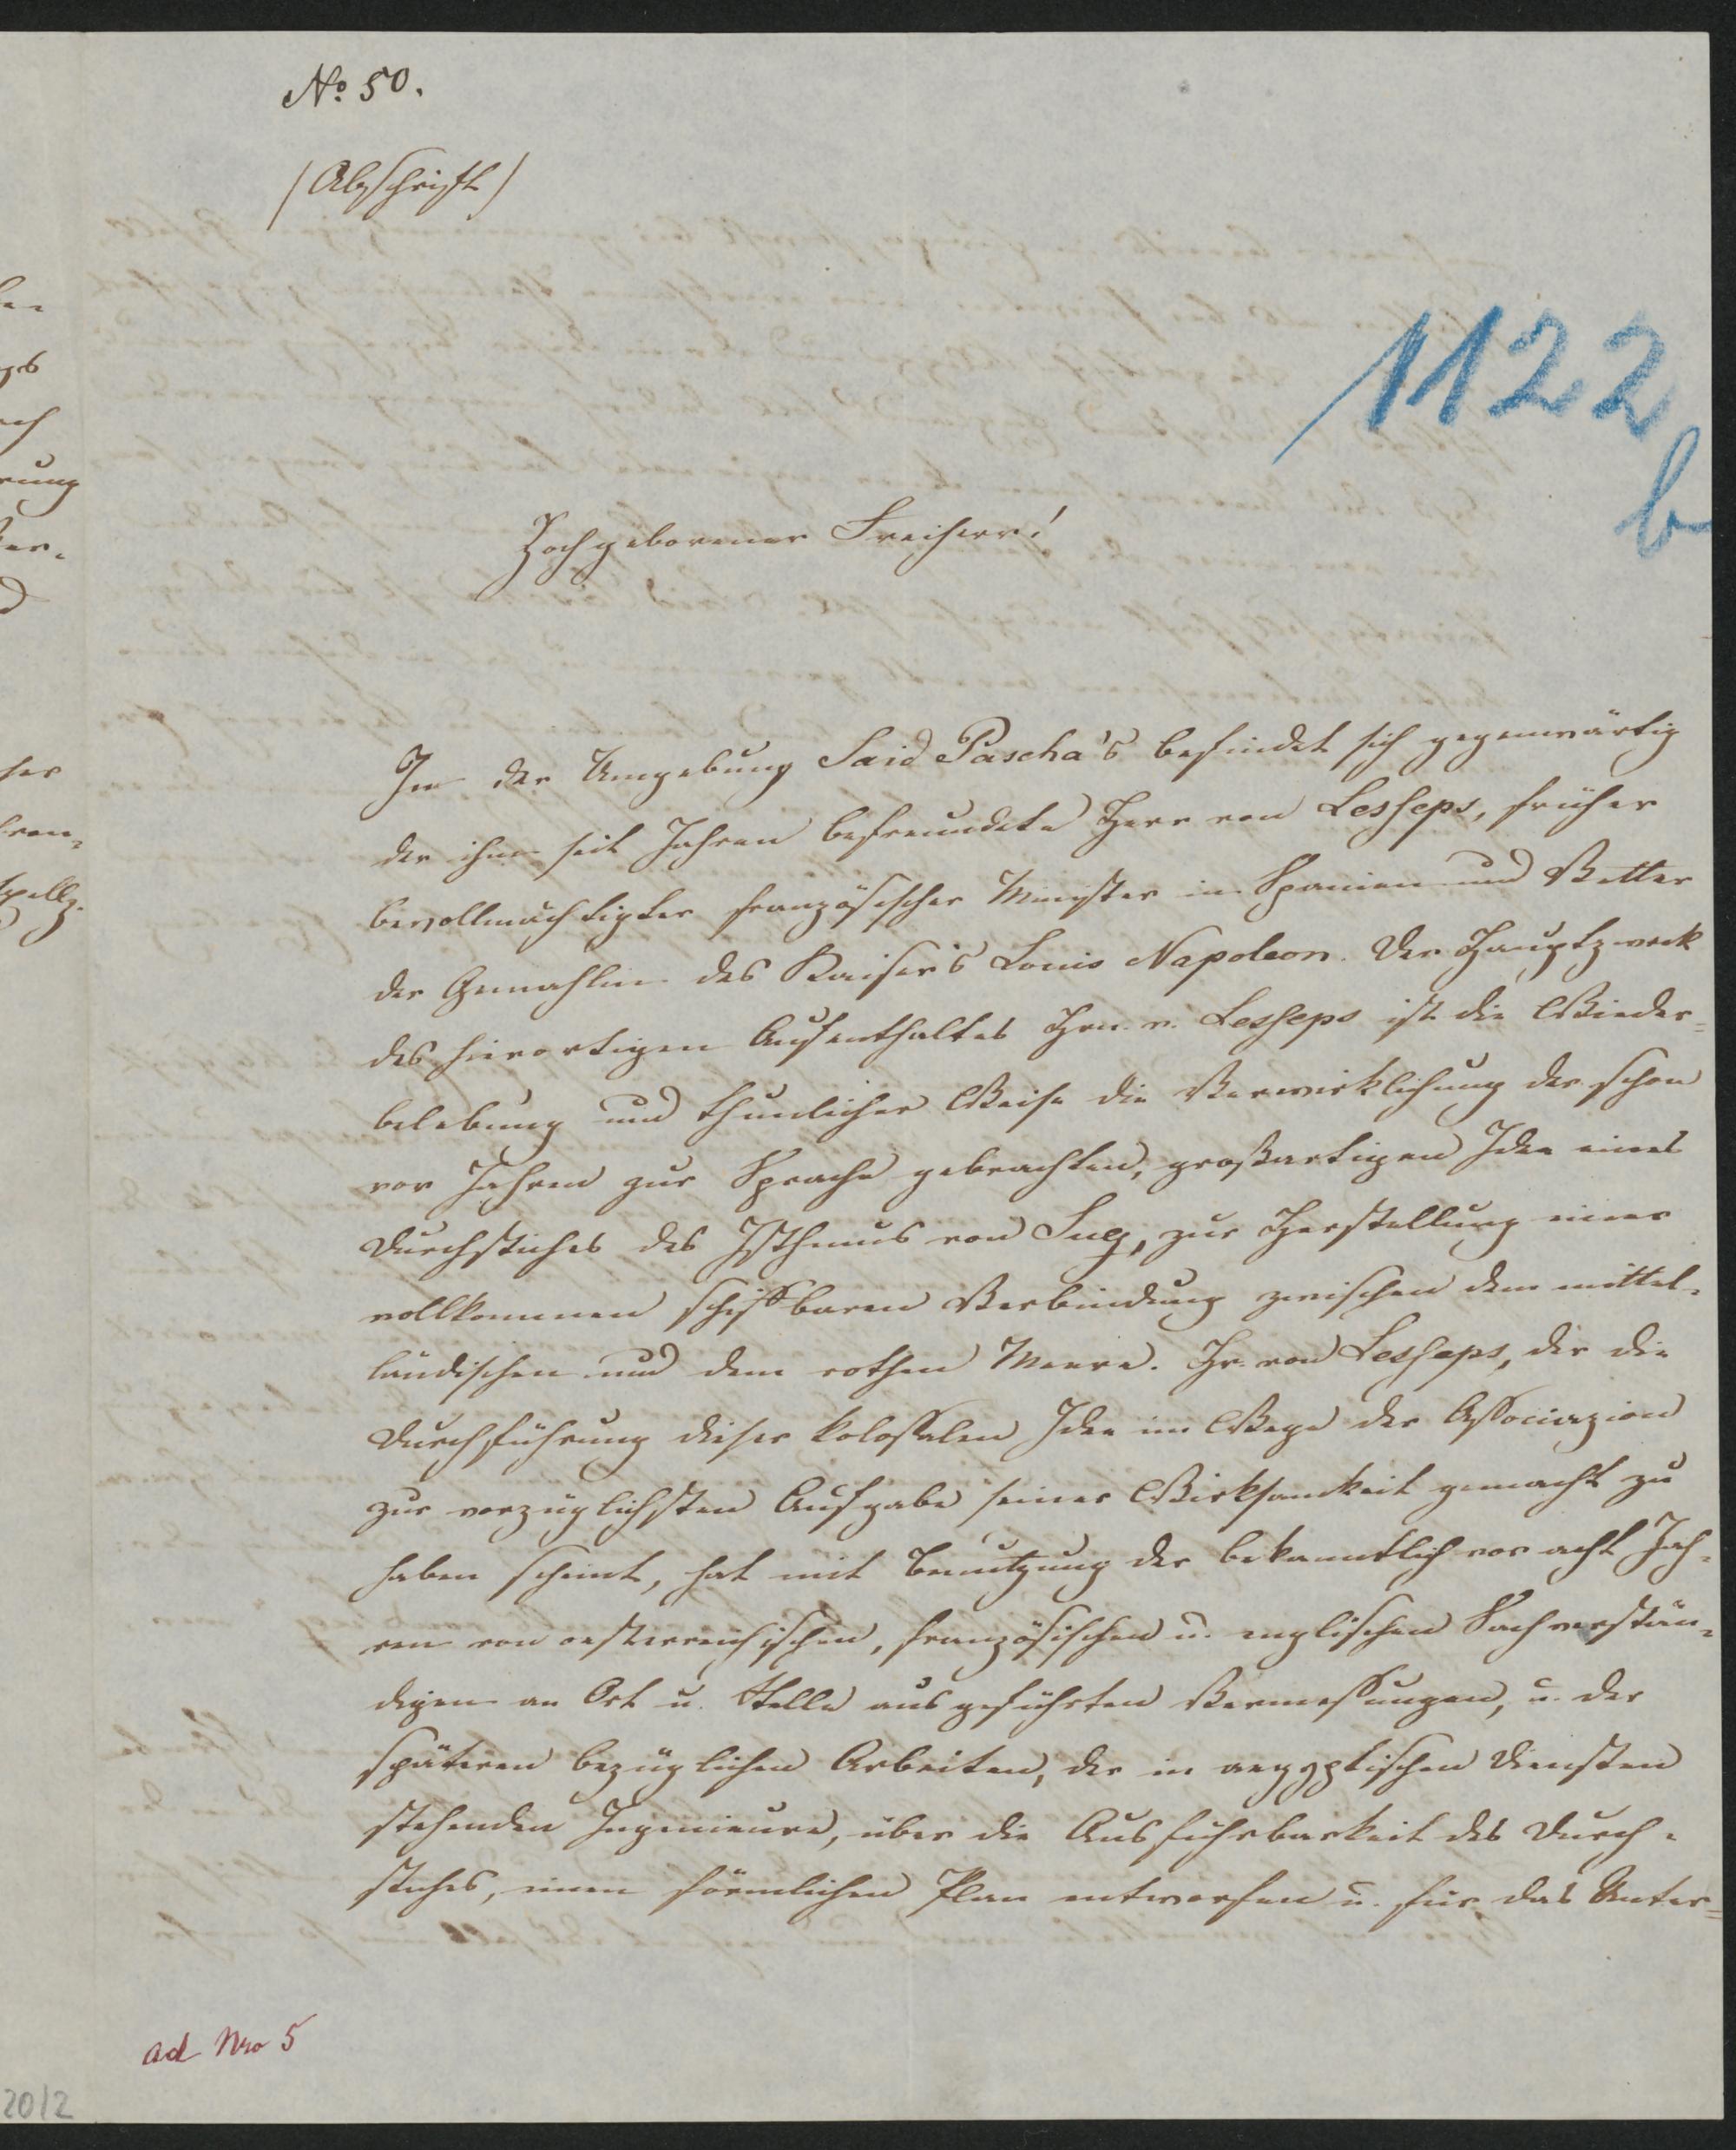 No 50.
/Abschrift/
1122
b
Hochgeborener Freiherr!
In der Umgebung Said Pascha's befindet sich gegenwärtig
der ihm seit Jahren befreundete Herr von Lesseps, früher
bevollmächtigter französischer Minister in Spanien und Vetter
der Gemahlin des Kaisers Louis Napoleon. Der Hauptzweck
des hierortigen Aufenthaltes Hrn. v. Lesseps ist die Wieder=
belebung und thunlicher Weise die Verwirklichung der schon
vor Jahren zur Sprache gebrachten, großartigen Idee eines
Durchstiches des Isthmus von Suez, zur Herstellung einer
vollkommen schiffbaren Verbindung zwischen dem mittel-
ländischen und dem rothen Meere. Hr. von Lesseps, der die
Durchführung dieser kolossalen Idee im Wege der Associazion
zur vorzüglichsten Aufgabe seiner Wirksamkeit gemacht zu
haben scheint, hat mit Benutzung der bekanntlich vor acht Jah-
ren von oesterreichischen, französischen u. englischen Sachverstän-
digen an Ort u. Stelle ausgeführten Vermessungen, u. der
späteren bezüglichen Arbeiten, der in aegyptischen Diensten
stehenden Ingenieure, über die Ausführbarkeit des Durch-
stiches, einen förmlichen Plan entworfen u. für das Unter=
ad Nro 5
20/2